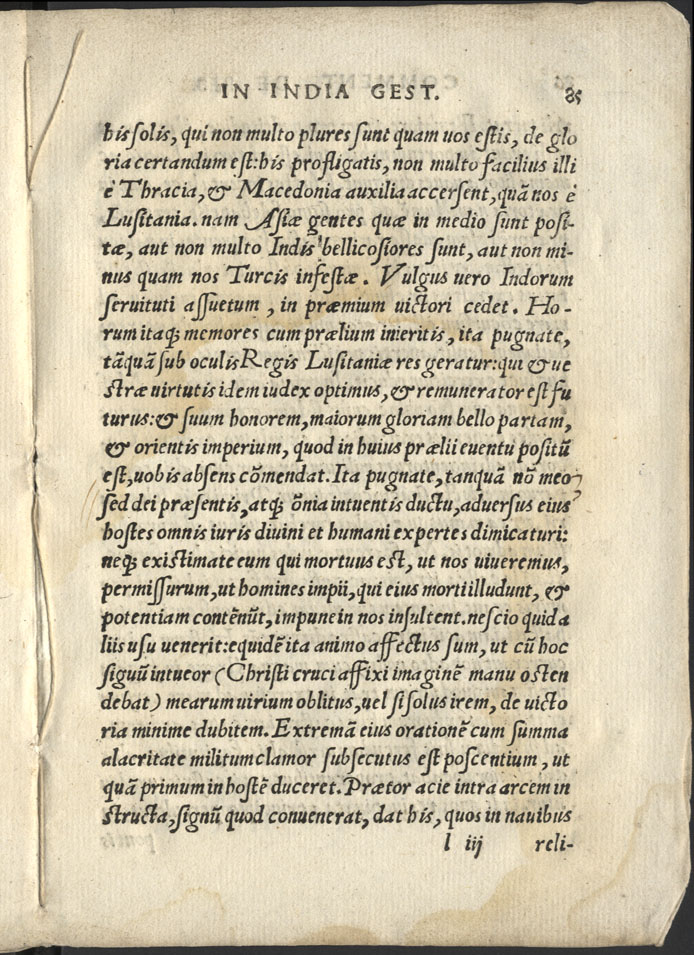 IN INDIA GEST. 85
his solis, qui non multo plures sunt quam uos estis, de glo
ria certandum est: his profligatis, non multo facilius illi
è Thracia, & Macedonia auxilia accersent, quā nos è
Lusitania. nam Asiæ gentes quæ in medio sunt posi-
tæ, aut non multo Indis bellicosiores sunt, aut non mi-
nus quam nos Turcis infestæ. Vulgus uero Indorum
seruituti assuetum, in præmium uictori cedet. Ho-
rum itaq; memores cum prælium inieritis, ita pugnate,
tāquā sub oculis Regis Lusitaniæ res geratur: qui & ue
stræ uirtutis idem iudex optimus, & remunerator est fu
turus: & suum honorem, maiorum gloriam bello partam,
& orientis imperium, quod in huius prælii euentu positū
est, uobis absens cōmendat. Ita pugnate, tanquā nō meo,
sed dei præsentis, atq; ōnia intuentis ductu, aduersus eius
hostes omnis iuris diuini et humani expertes dimicaturi:
neq; existimate eum qui mortuus est, ut nos uiueremus,
permissurum, ut homines impii, qui eius morti illudunt, &
potentiam contēnūt, impune in nos insultent. nescio quid a
liis usu uenerit: equidē ita animo affectus sum, ut cū hoc
siguū intueor (Christi cruci affixi imaginē manu osten
debat) mearum uirium oblitus, uel si solus irem, de uicto
ria minime dubitem. Extremā eius orationē cum summa
alacritate militum clamor subsecutus est poscentium, ut
quā primum in hostē duceret. Prætor acie intra arcem in
structa, signū quod conuenerat, dat his, quos in nauibus
l iij reli-